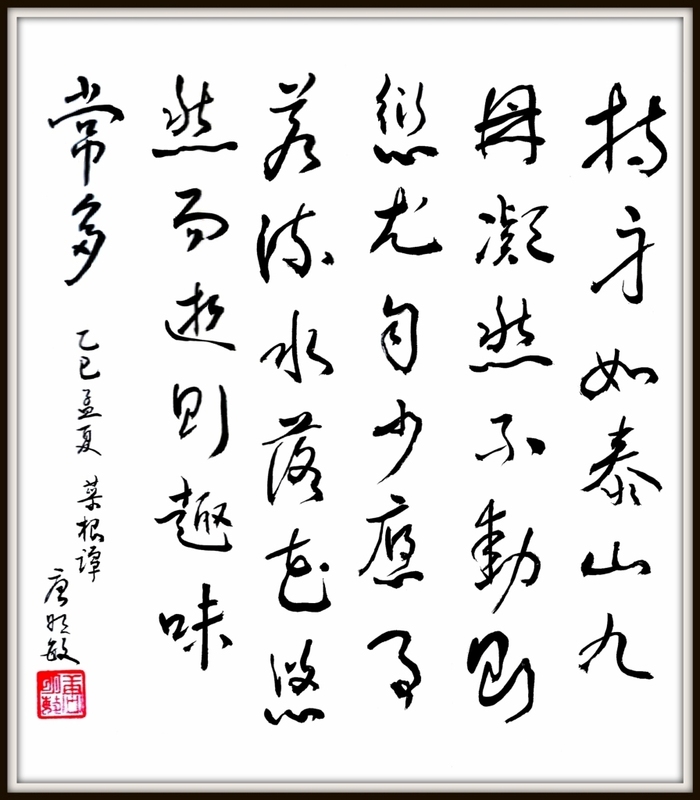 持身如泰山九
鼎凝然不動則
愆尤自少應事
若流水落花悠
然而逝則趣味
常多
乙巳孟夏 菜根谭
唐明敏